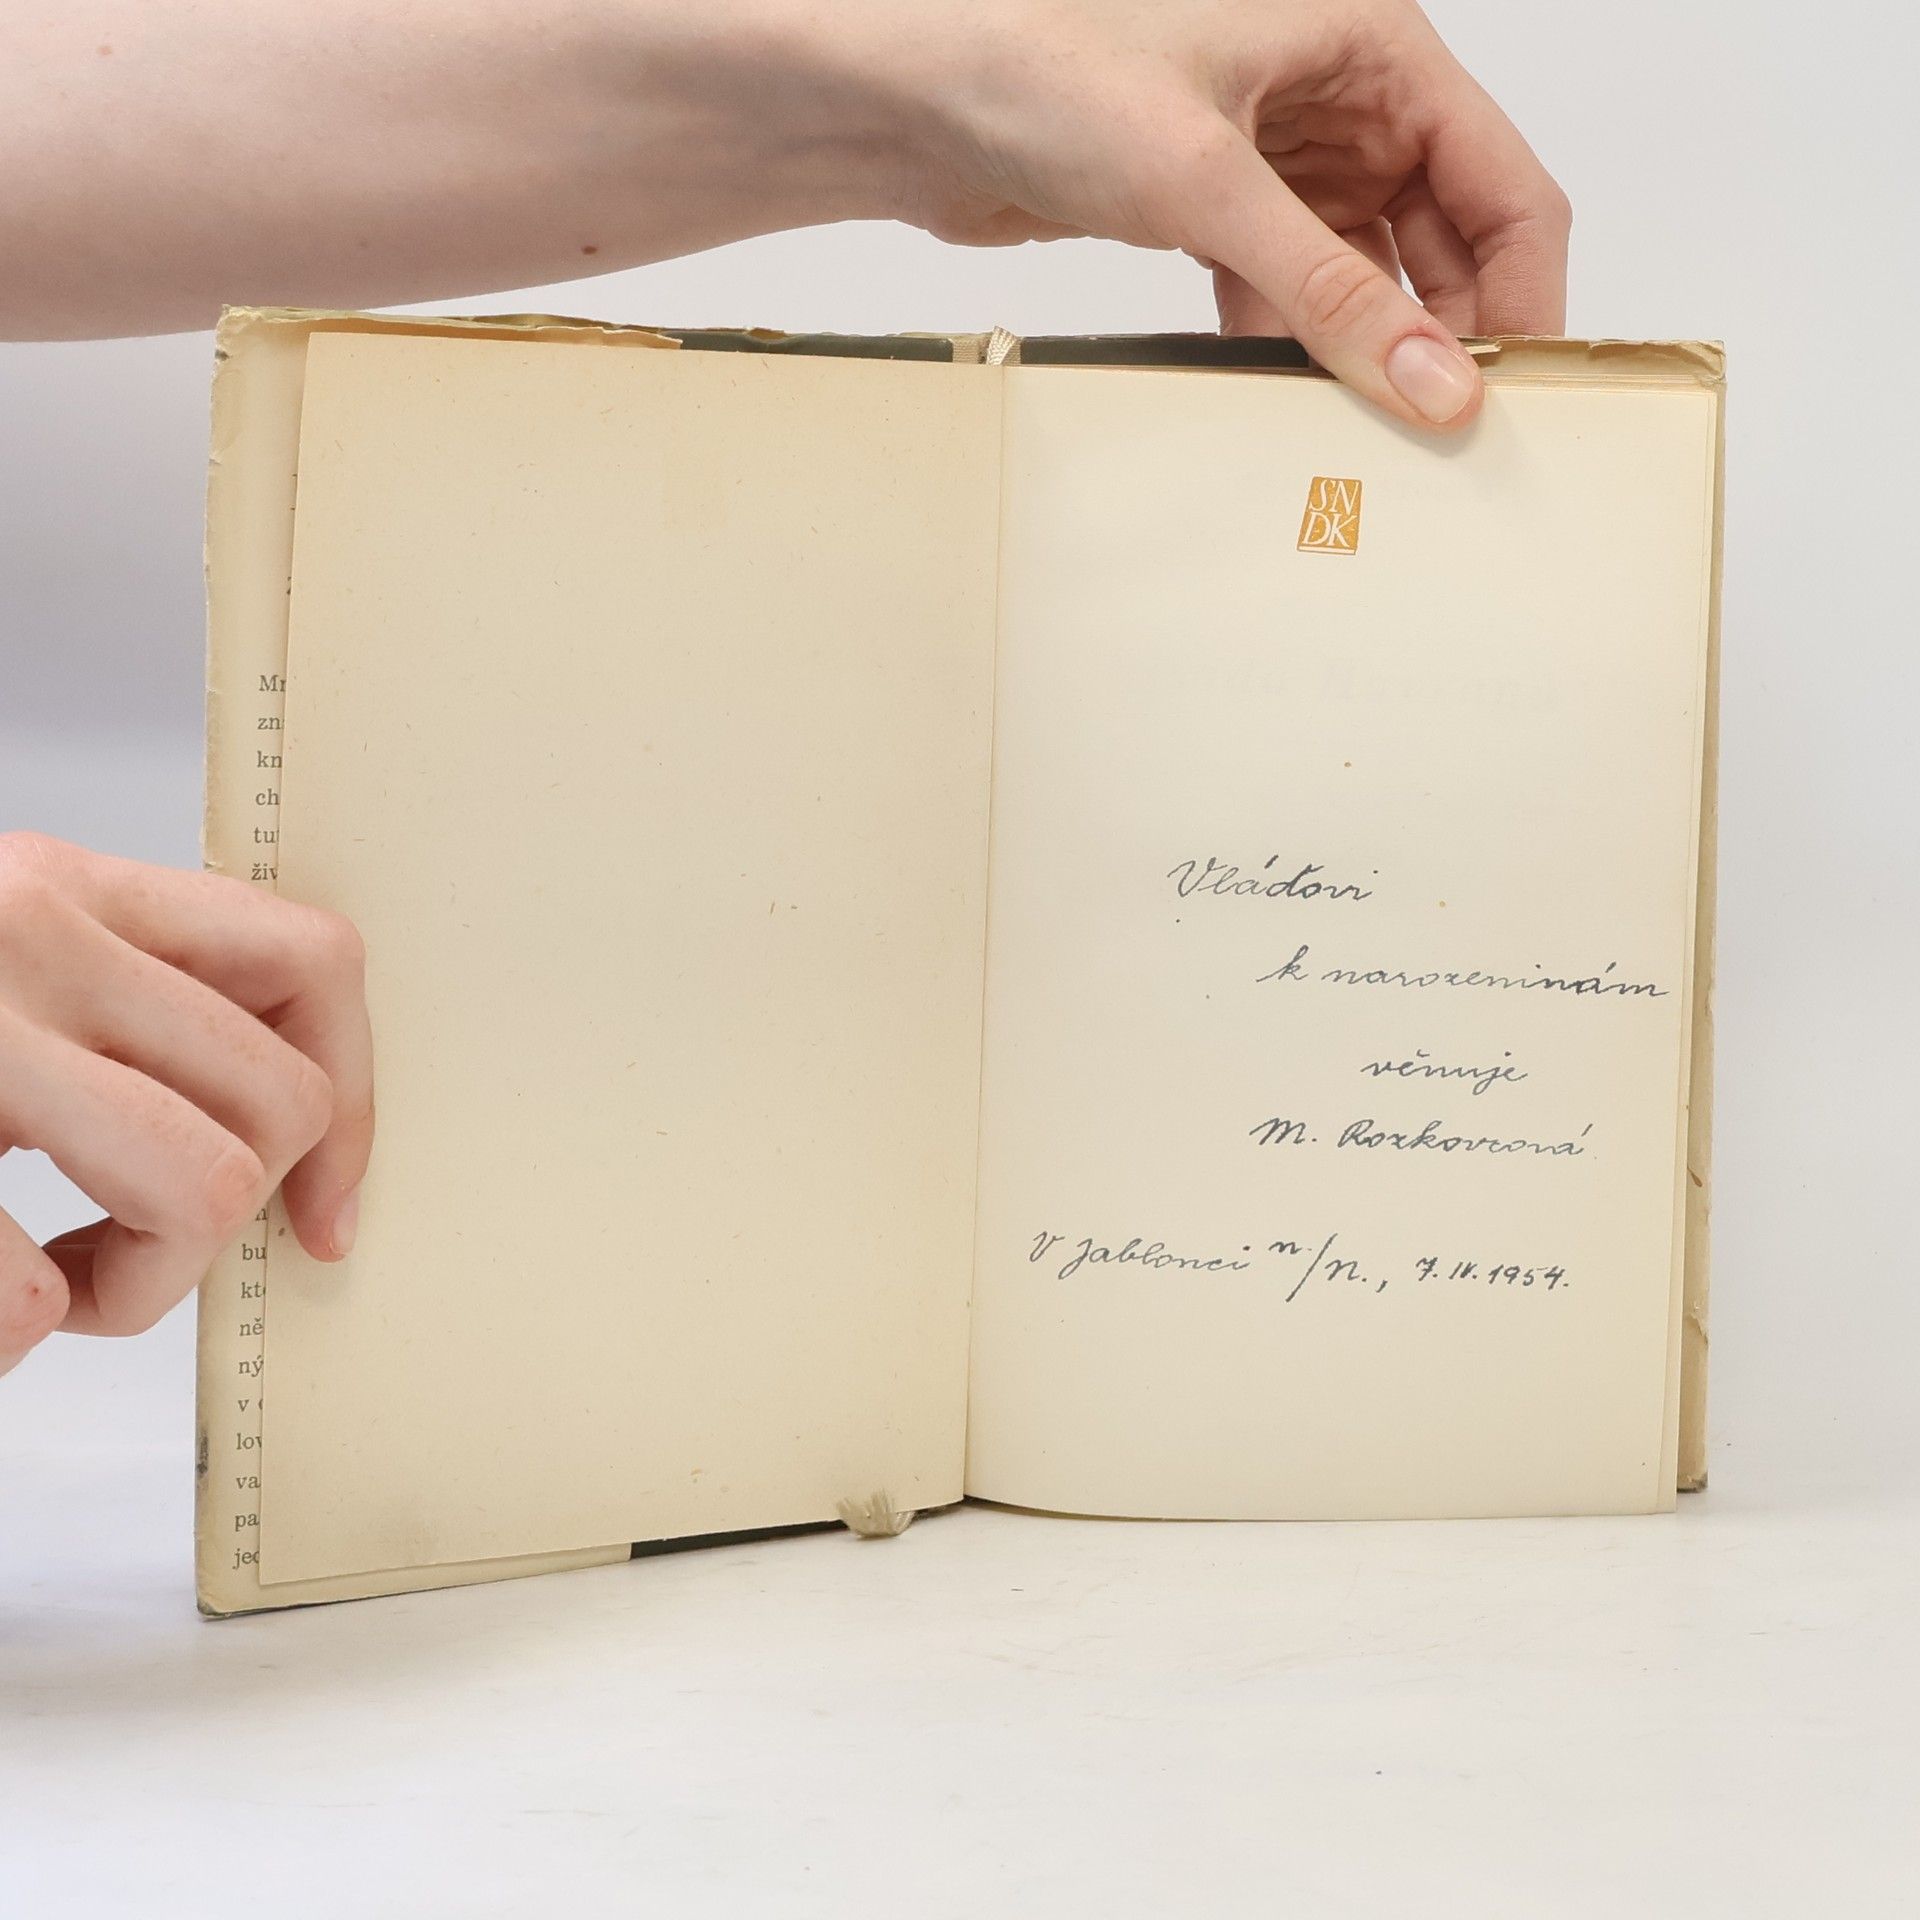 Mr
zn
kn
ch
tu
živ
bu
kt
ně
ný
v
lov
va
pa
jed
SN
DK
Vláďovi
k narozeninám
věnuje
M. Rozkovcová
V Jablonci n./N., 7.IV.1954.